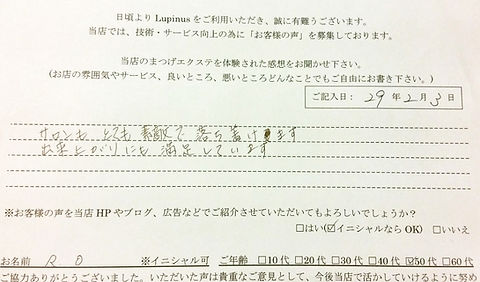 日頃より Lupinus をご利用いただき、誠に有難うございます。
当店では、技術・サービス向上の為に「お客様の声」を募集しております。
当店のまつげエクステを体験された感想をお聞かせ下さい。
(お店の雰囲気やサービス、良いところ、悪いところどんなことでもご自由にお書き下さい。)
ご記入日: 29年2月3日
サロンも とても 素敵で 落ち着けます
出来上がりにも 満足しています
※お客様の声を当店 HP やブログ、広告などでご紹介させていただいてもよろしいでしょうか?
□はい(☑イニシャルなら OK) □いいえ
お名前 R O ※イニシャル可 ご年齢 □10代 □20代 □30代 □40代 ☑50代 □60代
ご協力ありがとうございました。いただいた声は貴重なご意見として、今後当店で活かしていけるように努め